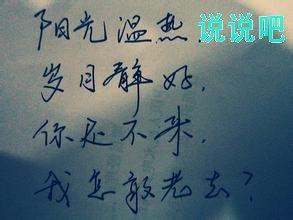 阳光温热
说说吧
岁月静好，
你还不来，
我怎敢老去？